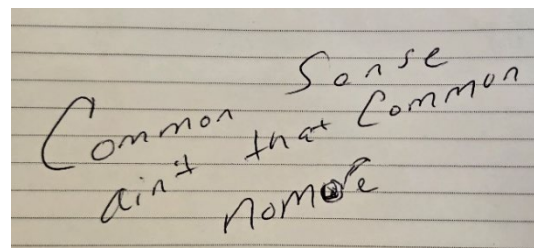 Common Sonse
ain't that Common
nomore